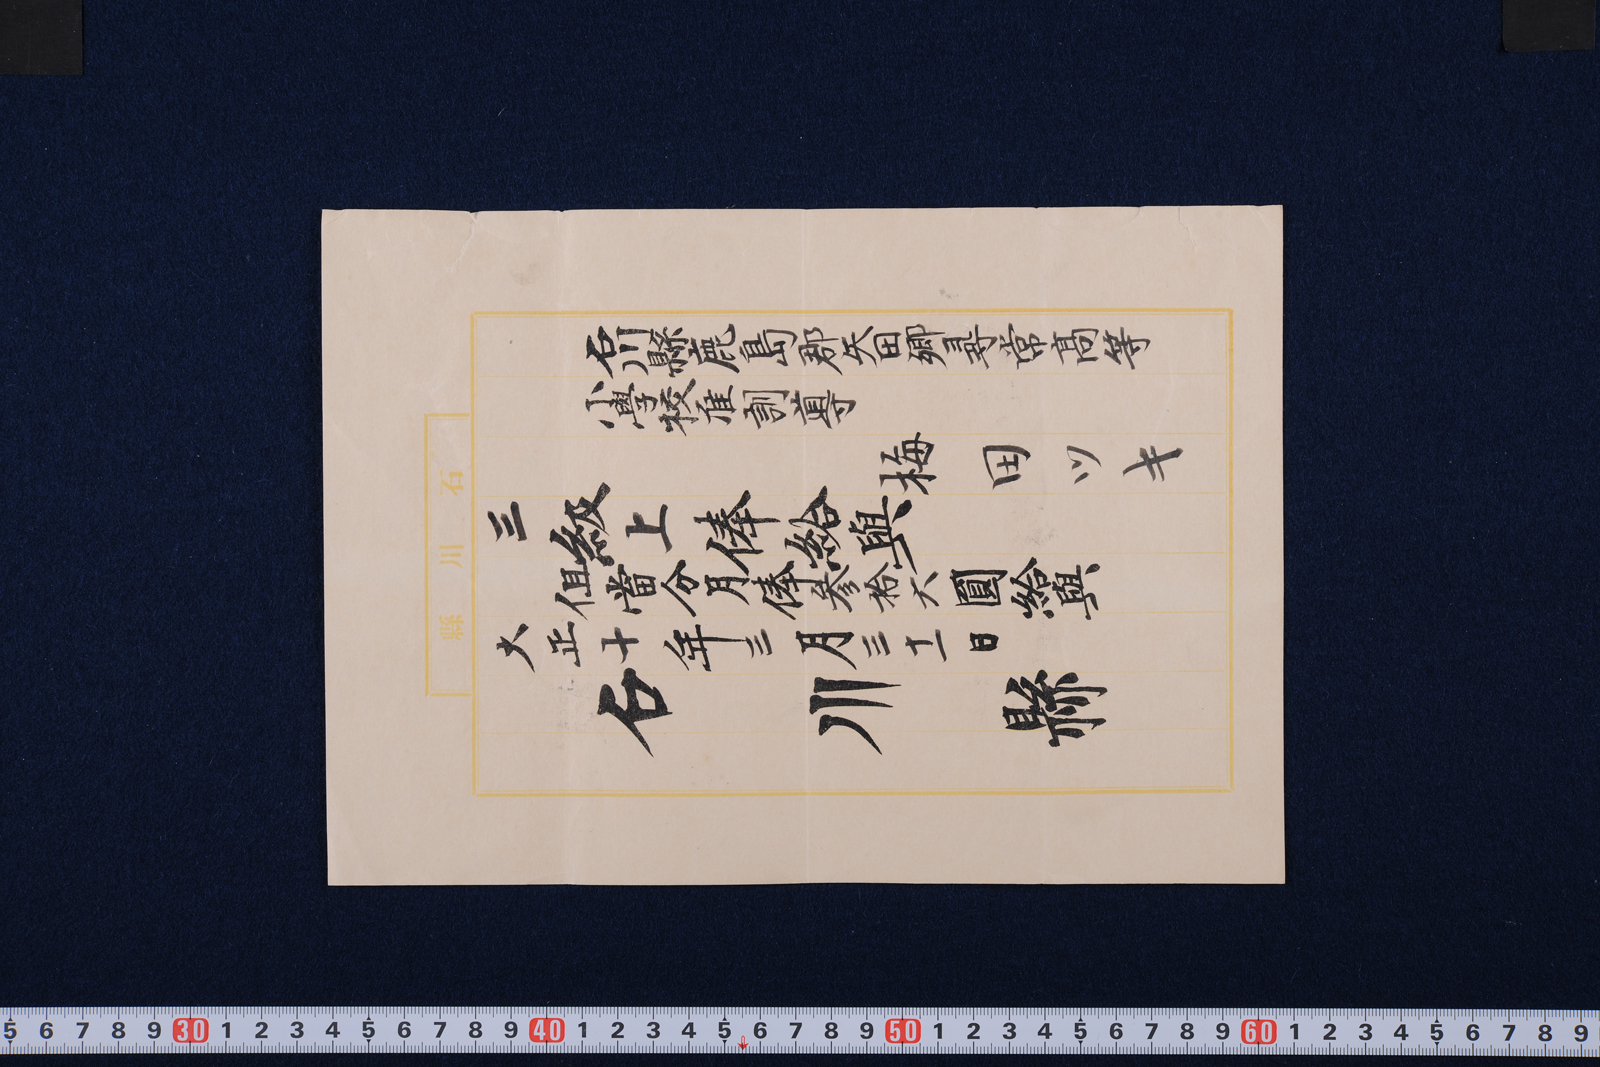 石川縣鹿島郡矢田郷尋常高等
小學校准訓導
梅田ツキ
三級上俸給與
但當分月俸参拾六圓給與
大正十年三月三十一日
石川縣
石川縣
5 6 7 8 9 30 1 2 3 4 5 6 7 8 9 40 1 2 3 4 5 6 7 8 9 50 1 2 3 4 5 6 7 8 9 60 1 2 3 4 5 6 7 8 9